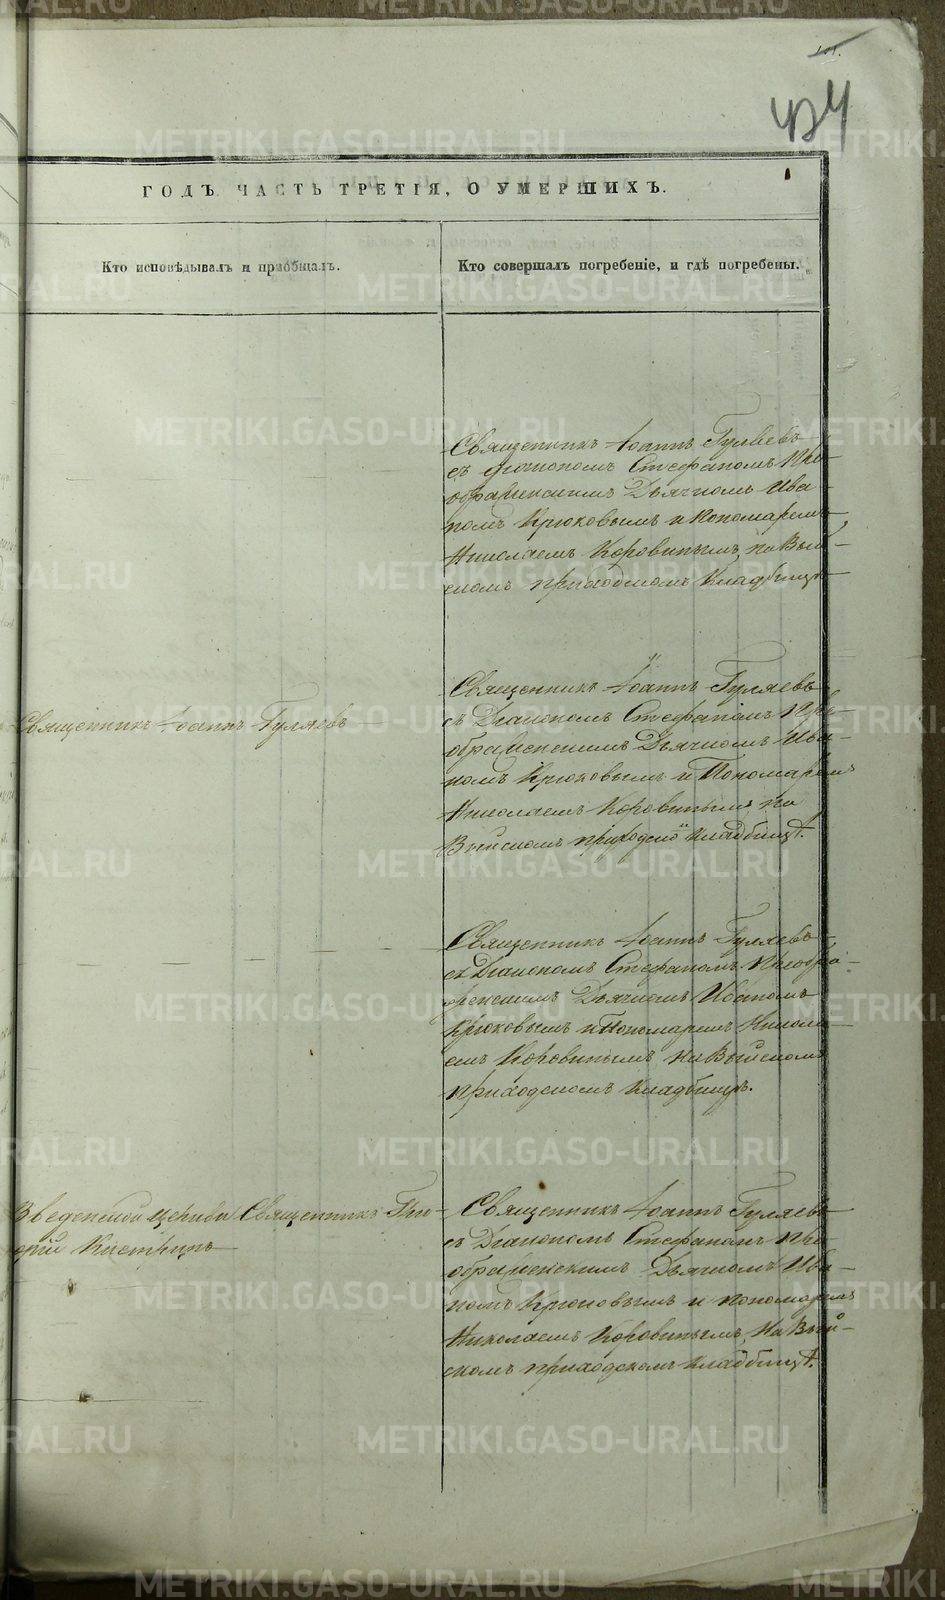 101.
424
ГОДЪ ЧАСТЬ ТРЕТІЯ, О УМЕРШИХЪ.
Кто исповѣдывалъ и пріобщалъ.
Кто совершалъ погребеніе, и гдѣ погребены.
Священникъ Іоаннъ Гуляевъ
съ діакономъ Стефаномъ Пре-
ображенскимъ Дьячкомъ Ива-
номъ Крюковымъ и Пономаремъ
Николаемъ Коровинымъ, на Вый-
скомъ приходскомъ кладбищѣ
Священникъ Іоаннъ Гуляевъ
Священникъ Іоаннъ Гуляевъ
съ Діакономъ Стефаномъ Пре-
ображенскимъ Дьячкомъ Ива-
номъ Крюковымъ и Пономаремъ
Николаемъ Коровинымъ на
Выйскомъ приходско кладбищѣ.
Священникъ Іоаннъ Гуляевъ
съ Діакономъ Стефаномъ Преобра-
женскимъ Дьячкомъ Иваномъ
Крюковымъ и Пономаремъ Никола-
емъ Коровинымъ, на Выйскомъ
приходскомъ кладбищѣ.
Введенской церкви Священникъ Гри-
горій Кистринъ
Священникъ Іоаннъ Гуляевъ
съ Діакономъ Стефаномъ Пре
ображенскимъ Дьячкомъ Ива-
номъ Крюковымъ и пономаремъ
Николаемъ Коровинымъ, на Вый-
скомъ приходскомъ кладбищѣ.
METRIKI.GASO-URAL.RU